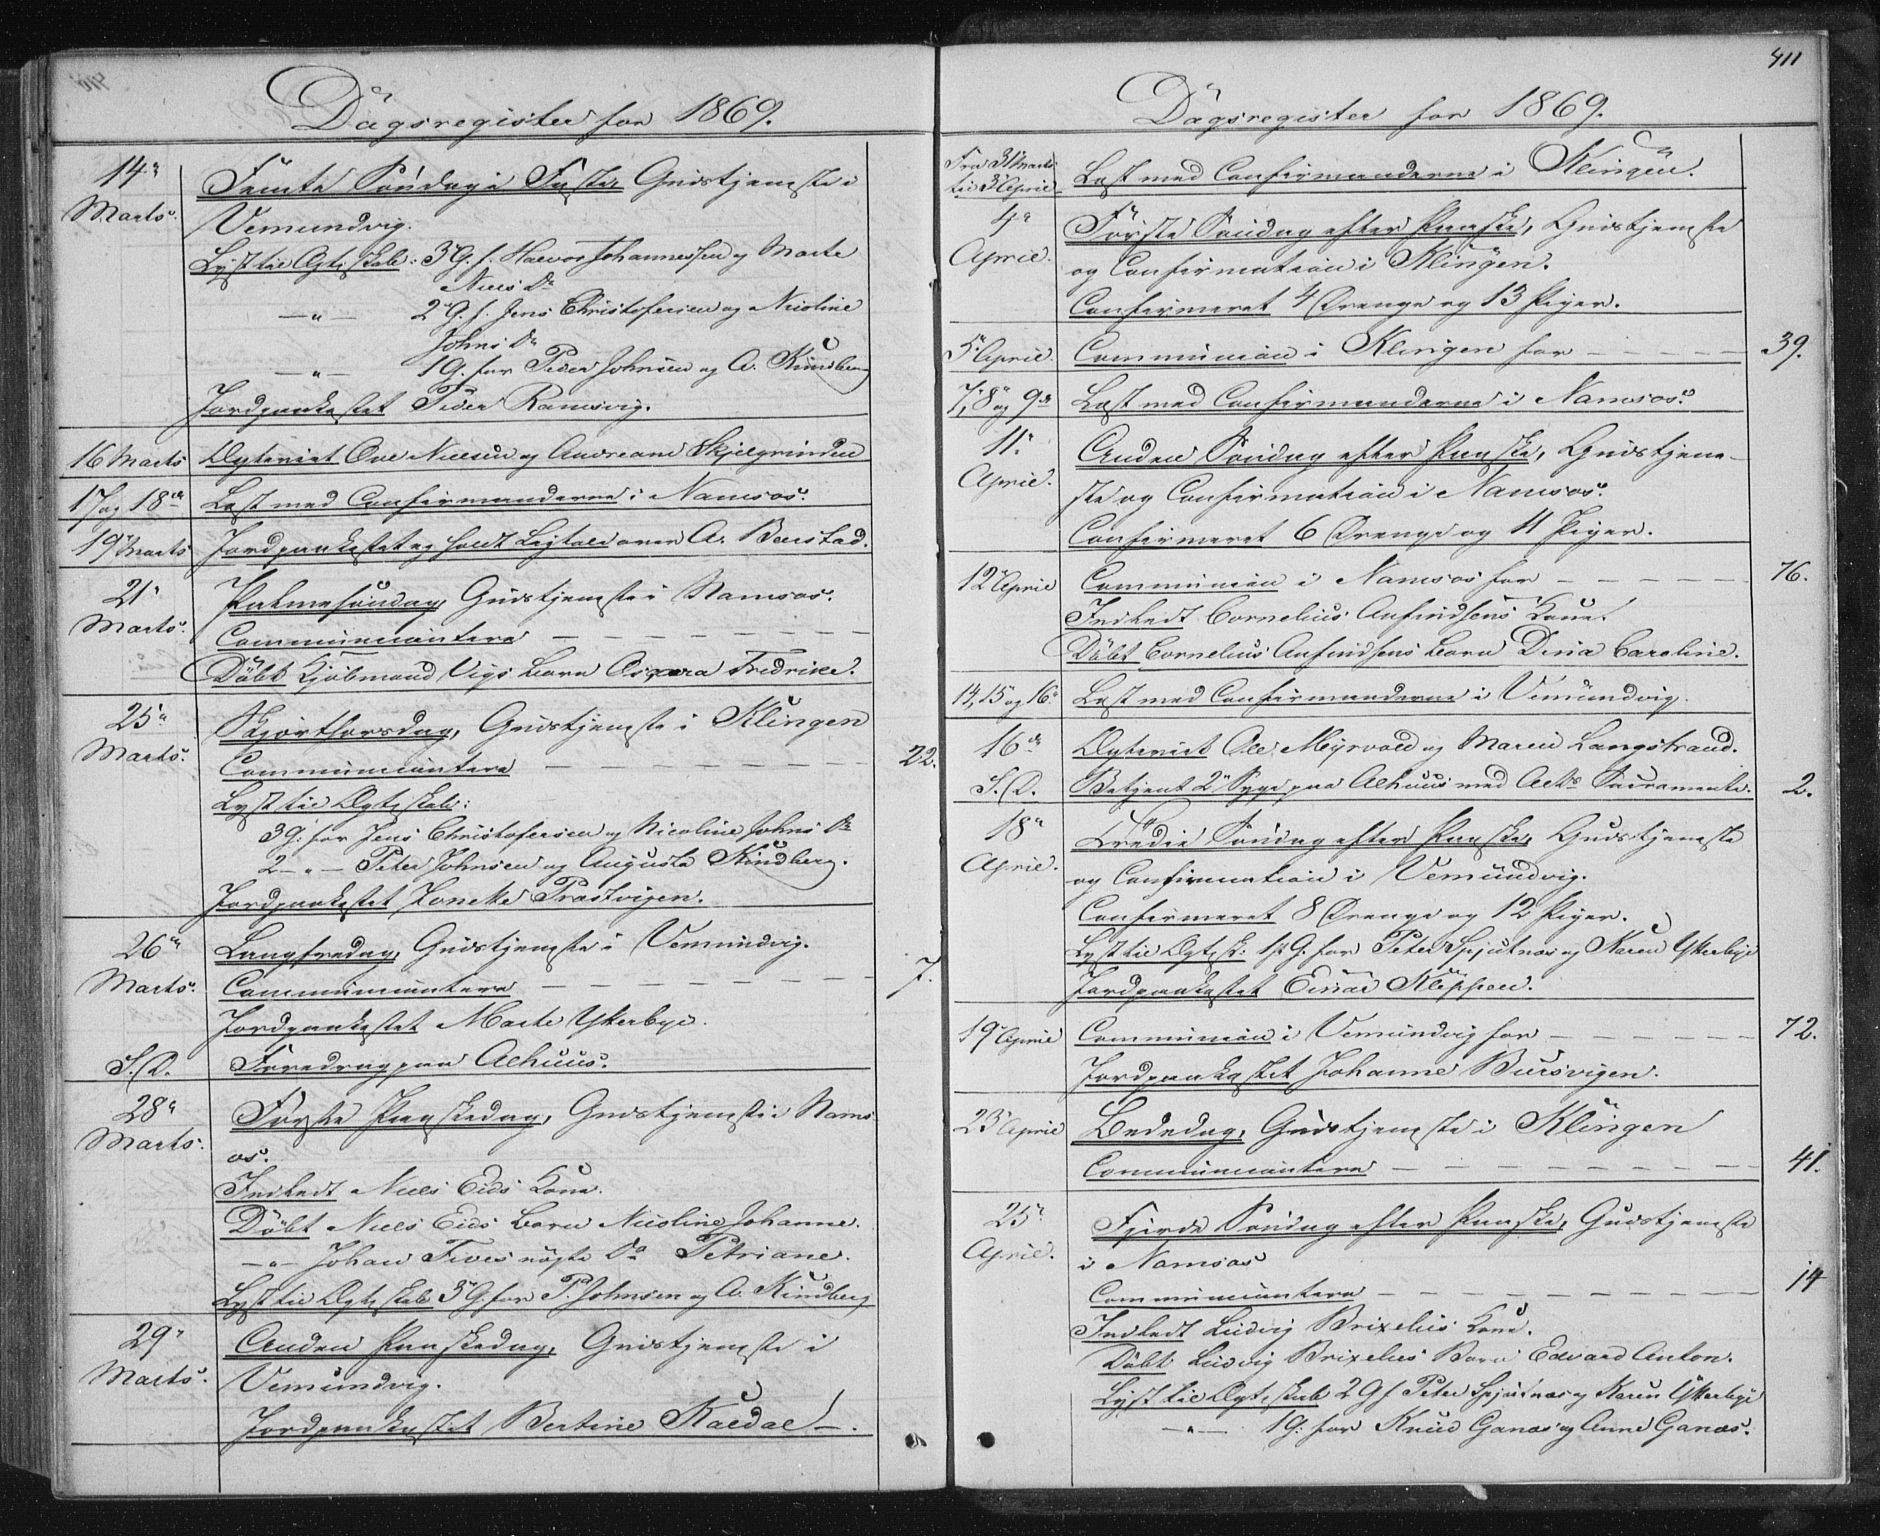 Dagsregister for 1869.
14de Marts. Femte Søndag i Faste, Gudstjeneste i
Vemundvig.
Lyst til Ægteskab: 3 G. f. Halvor Johannessen og Marte
Niels Dr
—„— 2 G. f. Jens Christofersen og Nicoline
Johns Dr
—„— 1 G. for Peder Johnsen og A. Kindberg
Jordpaakastet Peder Ramsvig.
16 Marts Ægteviet Ole Nielsen og Andreane Skjelgrinden
17 og 18de Læst med Confirmanderne i Namsos.
19 Marts Jordpaakastet og holdt Ligtale over A. Berstad.
21de Marts. Palmesøndag, Gudstjeneste i Namsos.
Communicantere — — — — — — —
Døbt Kjøbmand Vigs Barn Fredrike.
25de Marts. Skjærthorsdag, Gudstjeneste i Klingen
Communicantere — — — — — — — 22.
Lyst til Ægteskab:
3 G. for Jens Christofersen og Nicoline Johns Dr
2 —„— Peter Johnsen og Augusta Kindberg.
Jordpaakastet Prastvigen.
26de Marts. Langfredag, Gudstjeneste i Vemundvig.
Communicantere — — — — — — — 7.
Jordpaakastet Marte Ytterbye.
S. D. Foredrag paa Aelhuus.
28de Marts. Første Paaskedag, Gudstjeneste i Nams
os.
Indledt Niels Eids Kone.
Døbt Niels Eids Barn Nicoline Johanne.
—„— Johan uægte Dr Petriane.
Lyst til Ægteskab 3 G. for P. Johnsen og A. Kindberg
29de Marts. Anden Paaskedag, Gudstjeneste i
Vemundvig.
Jordpaakastet Bertine Kaldal —.
411
Dagsregister for 1869.
Fra 31 Marts til 3 April Læst med Confirmanderne i Klingen.
4de April. Første Søndag efter Paaske, Gudstjeneste
og Confirmation i Klingen.
Confirmeret 4 Drenge og 13 Piger.
5. April. Communion i Klingen for — — — — 39.
7, 8 og 9de Læst med Confirmanderne i Namsos.
11. April. Anden Søndag efter Paaske, Gudstjene-
ste og Confirmation i Namsos.
Confirmeret 6 Drenge og 11 Piger.
12 April Communion i Namsos for — — — — — 76.
Indledt Cornelius Anfindsens Kone.
Døbt Cornelius Anfindsens Barn Dina Caroline.
14, 15 og 16. Læst med Confirmanderne i Vemundvig.
16de Ægteviet Ole Myrvold og Maren Langstrand.
S. D. Betjent 2 Syge paa Aelhuus med Alt. Sacramente. 2.
18de April. Tredie Søndag efter Paaske, Gudstjeneste
og Confirmation i Vemundvig.
Confirmeret 8 Drenge og 12 Piger.
Lyst til Ægtesk: 1st G. for Peter Spjutnæs og Karen Ytterbye
Jordpaakastet Einar Kleppen.
19 April Communion i Vemundvig for — — — — — 72.
Jordpaakastet Johanne Bursvigen.
23 April Bededag, Gudstjeneste i Klingen
Communicantere — — — — — — — — 41.
25. April. Fjerde Søndag efter Paaske, Gudstjeneste
i Namsos
Communicantere — — — — — — — — 14
Indledt Ludvig Brixelius Kone.
Døbt Ludvig Brixelius Barn Edvard Anton.
Lyst til Ægteskab 2 G f Peter Spjutnæs og Karen Ytterbye
—„— 1 G. for Knud Ganæs og Anne Ganæs.